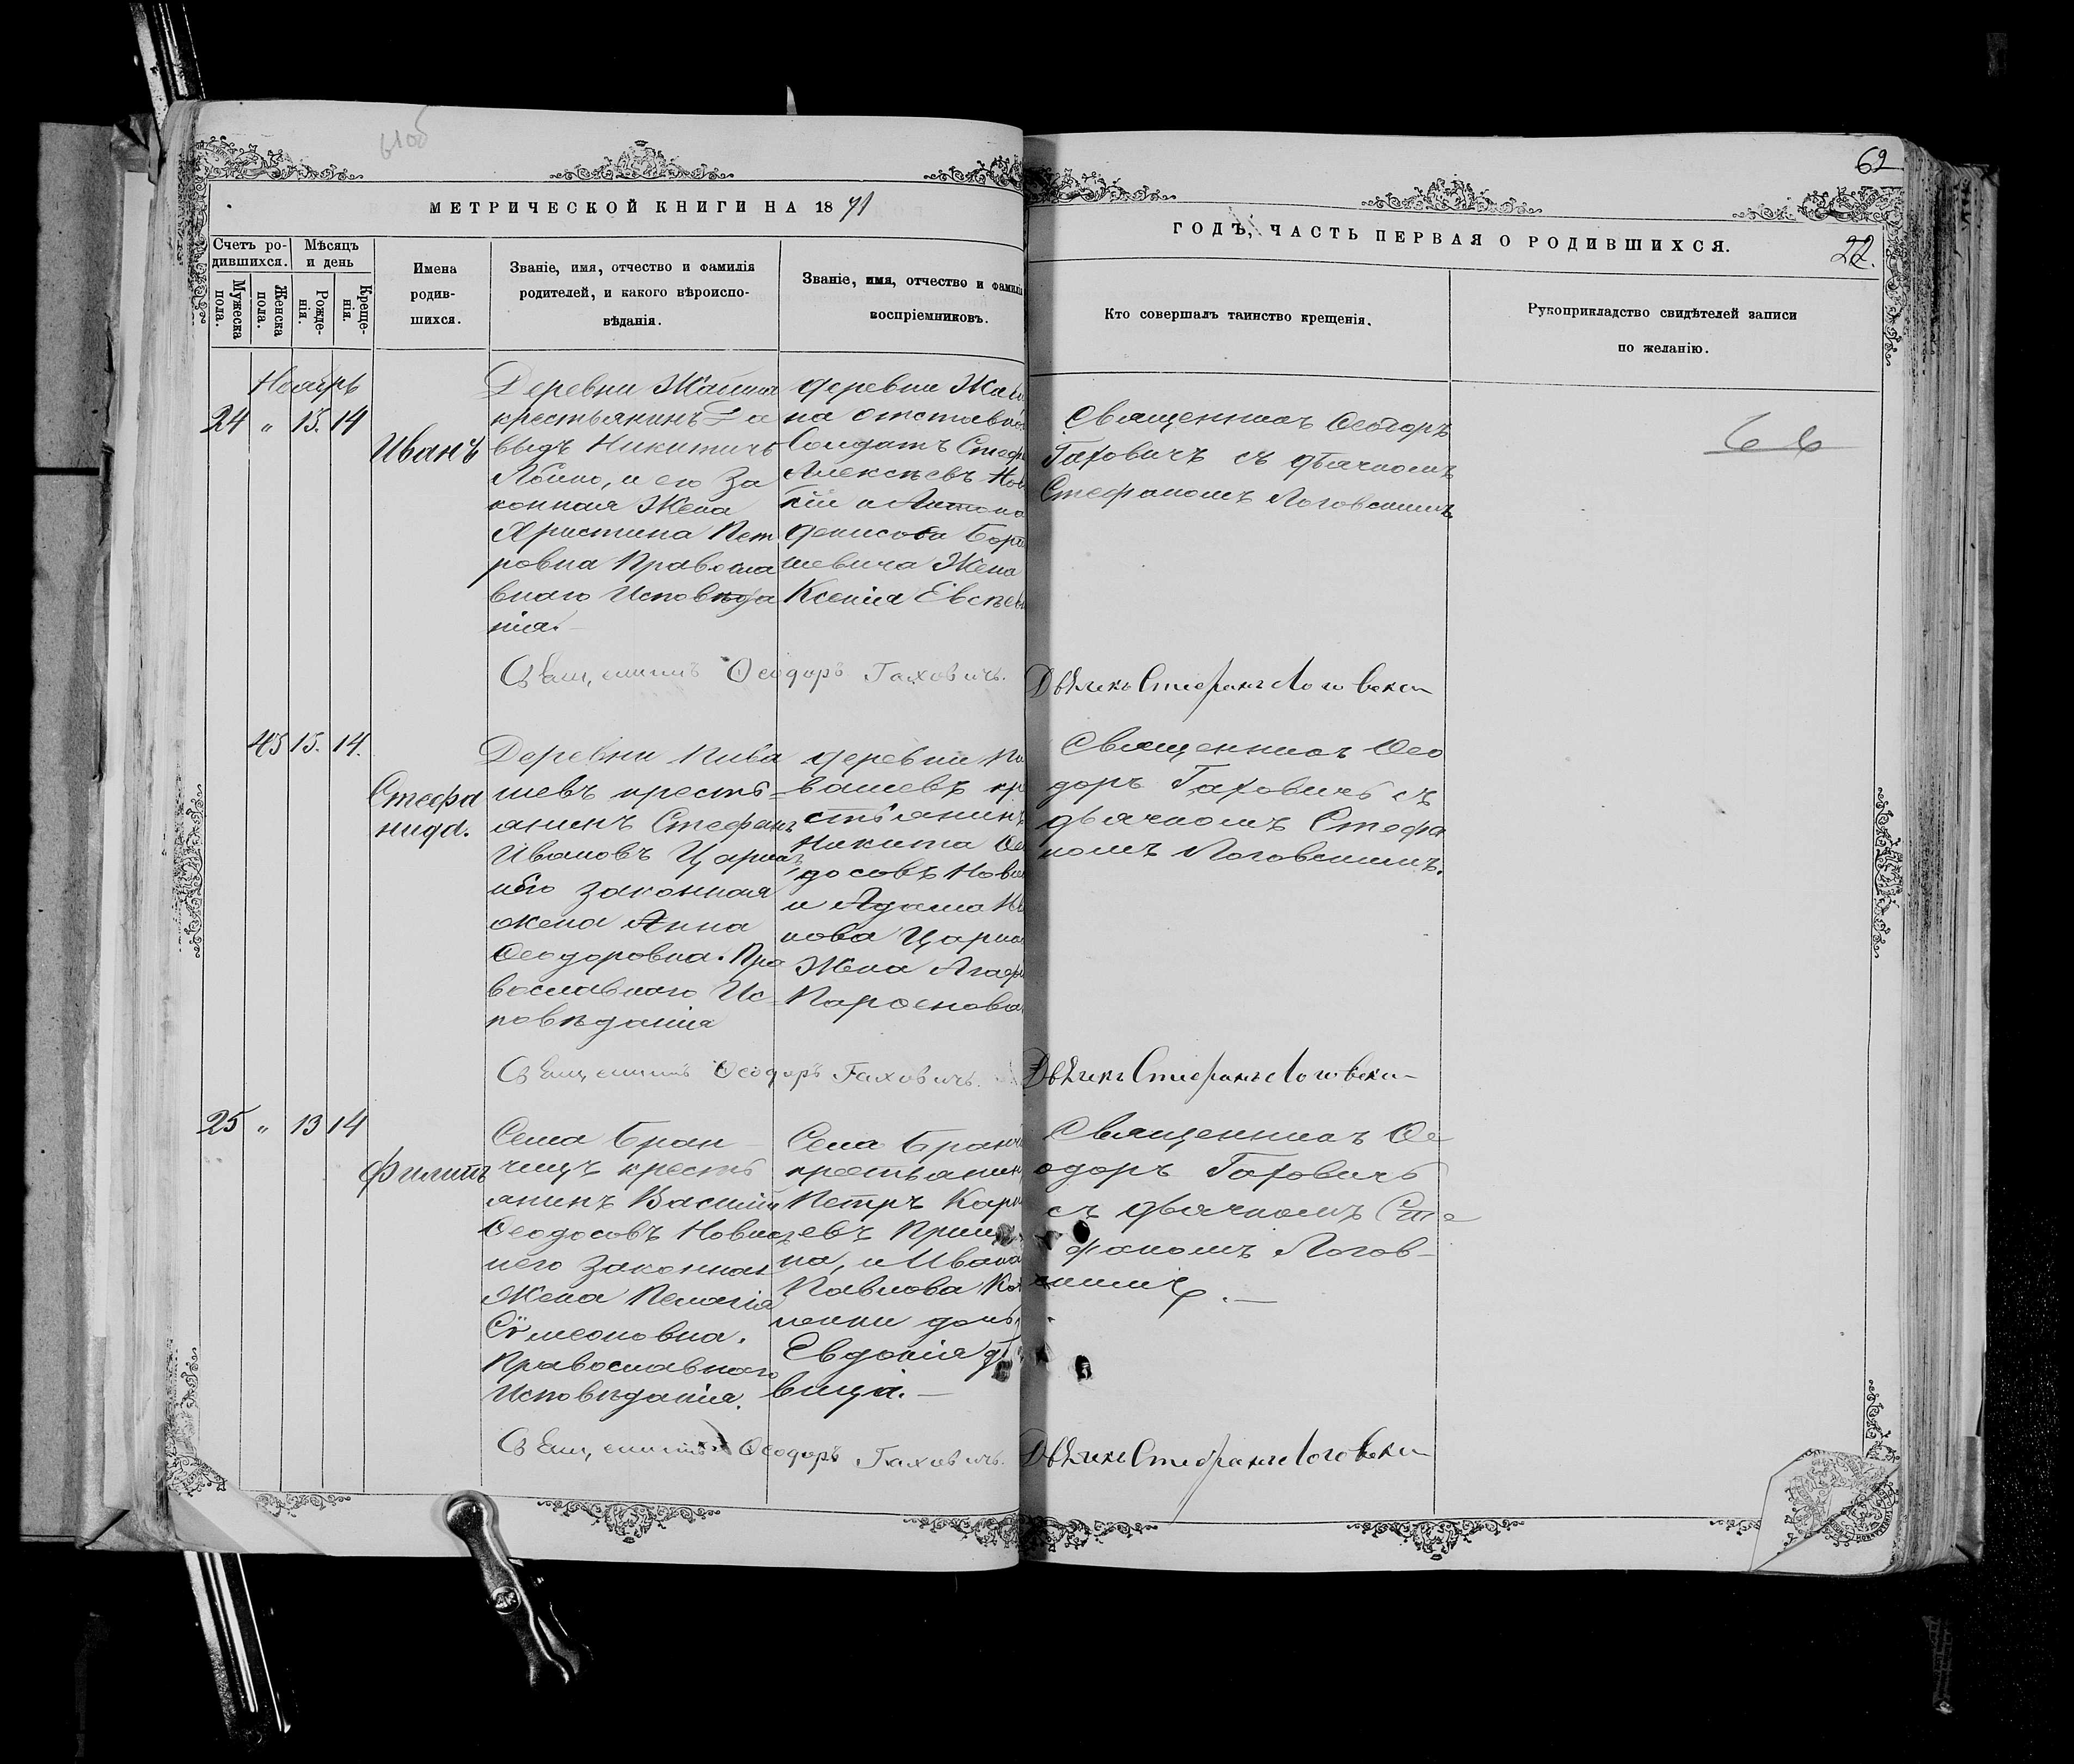 61об
62
МЕТРИЧЕСКОЙ КНИГИ НА 1871
ГОДѢ, ЧАСТЬ ПЕРВАЯ О РОДИВШИХСЯ.
22.
Счетъ ро-
дившихся.
Мужеска
пола.
Женска
пола.
Мѣсяцъ
и день
Рожде-
нія.
Креще-
нія.
Имена
родив-
шихся.
Званіе, имя, отчество и фамилія
родителей, и какого вѣроиспо-
вѣданія.
Званіе, имя, отчество и фамилія
воспріемниковъ.
Кто совершалъ таинство крещенія.
Рукоприкладство свидѣтелей записи
по желанію.
Ноябрь
24 " 13. 14
Иванъ
Деревни
крестьянинъ Да
выдъ Никитичъ
и его За
конная Жена
Христина Пет
ровна Правосла
внаго Исповѣда
нія.
деревни
на отставно
Солдатъ Стеф
Алексѣевъ Нов
кій и Антона
денисова Бор
шевича Жена
Ксенія Евсѣев
Священникъ Ѳеодоръ
Гаховичъ съ дьячкомъ
Стефаномъ Логовскимъ
Священникъ Ѳеодоръ Гаховичъ.
Дьячекъ Стефанъ Логовски
45 13. 14.
Стефа
нида.
Деревни Пива
шевъ кресть-
янинъ Стефанъ
Ивановъ Царик
иего законная
жена Анна
Ѳеодоровна. Пра
вославнаго Ис-
повѣданія
деревни Пи
вашевъ кре
стьянинъ
Никита Ѳео
досовъ Нови
и Адама
нова Царик
Жена Агаф
Парѳенова
Священникъ Ѳео
доръ Гаховичъ съ
дьячкомъ Стефа
номъ Логовскимъ.
Священникъ Ѳеодоръ Гаховичъ.
Дьячекъ Стефанъ Логовски
25 " 13 14
Филипъ
Села Бран
чицъ кресть
янинъ Василій
Ѳеодосовъ Новик
иего законная
Жена Пелагія
Сѵмеоновна.
Православнаго
Исповѣданія.
Села Бранч
крестьянин
Петръ Карп
евъ
на, и Ивана
Павлова
ленки дочь
Евдокія дѣ
вица.
Священникъ Ѳе
одоръ Гаховичъ
съ дьячкомъ Сте
фаномъ Логов-
скимъ.
Священникъ Ѳеодоръ Гаховичъ.
Дьячекъ Стефанъ Логовски